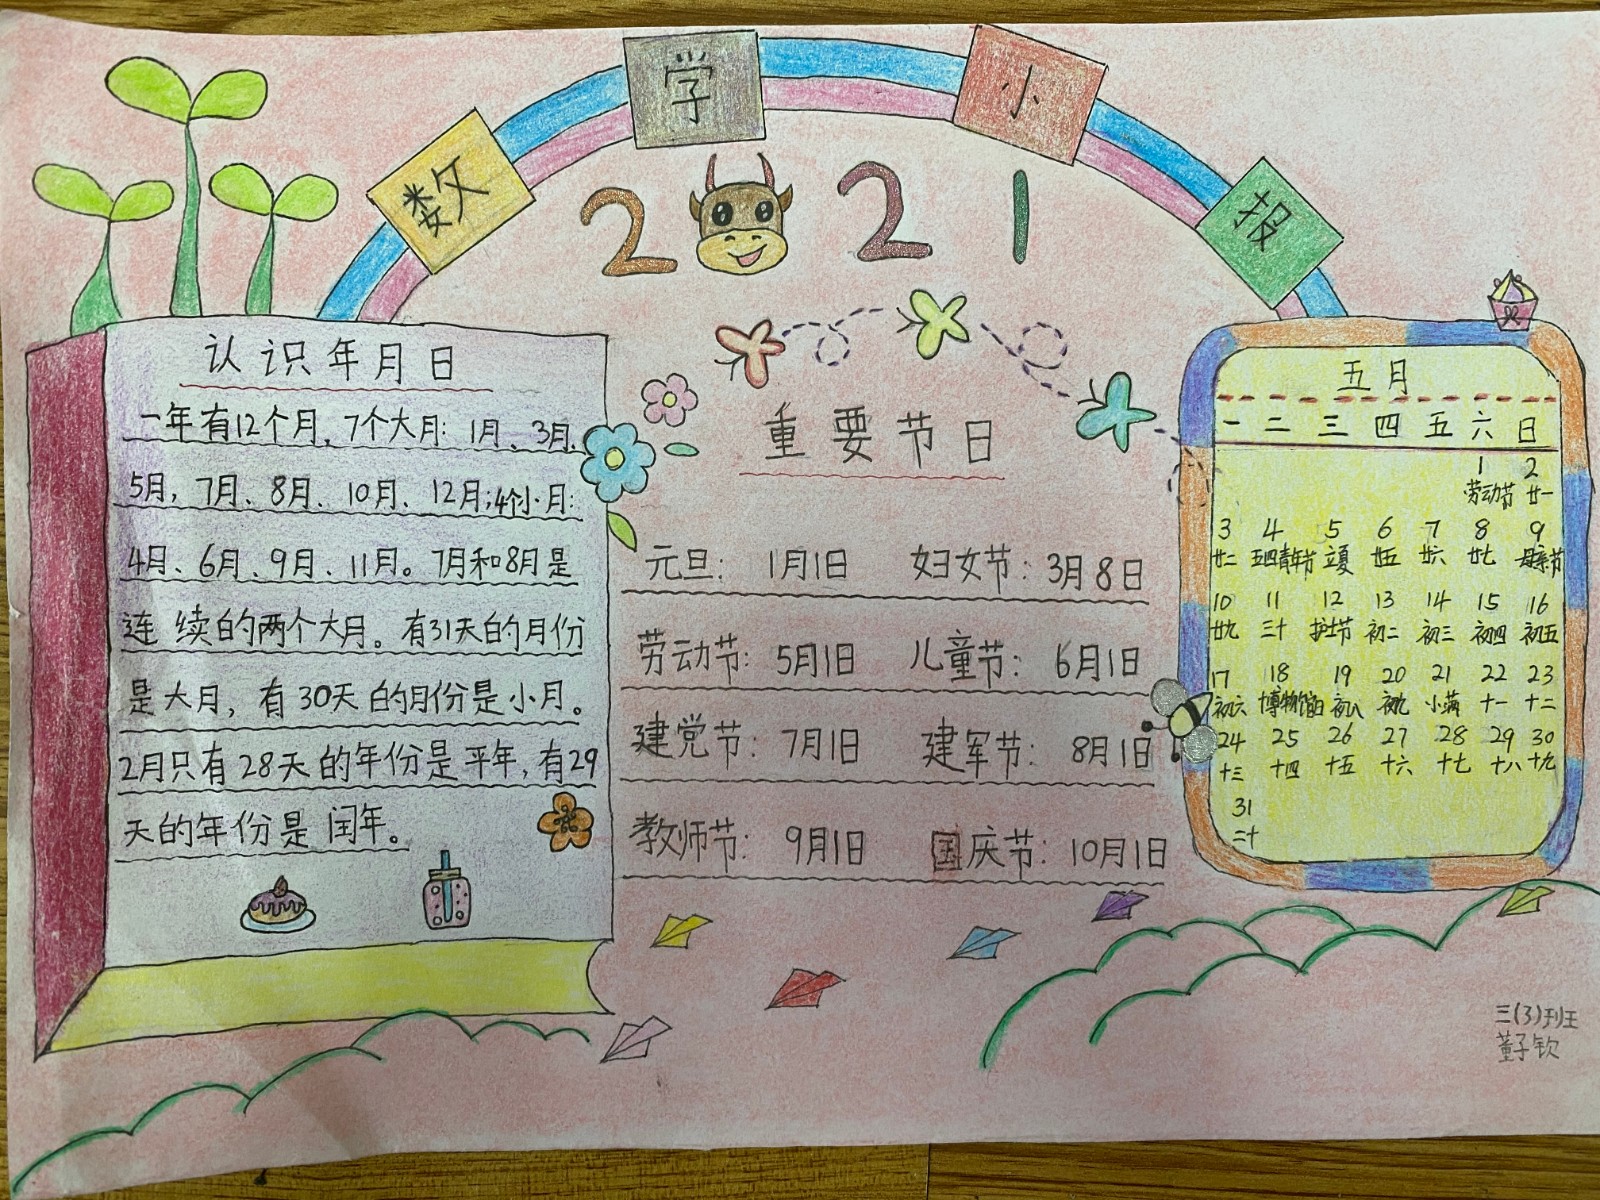 数学小报
2021
认识年月日
一年有12个月,7个大月:1月、3月、
5月,7月、8月、10月、12月;4个小月:
4月、6月、9月、11月。7月和8月是
连续的两个大月。有31天的月份
是大月,有30天的月份是小月。
2月只有28天的年份是平年,有29
天的年份是闰年。
重要节日
元旦:1月1日 妇女节:3月8日
劳动节:5月1日 儿童节:6月1日
建党节:7月1日 建军节:8月1日
教师节:9月1日 国庆节:10月1日
五月
一 二 三 四 五 六 日
1 2
劳动节 廿一
3 4 5 6 7 8 9
廿二 五四青年节 立夏 廿五 廿六 廿七 母亲节
10 11 12 13 14 15 16
廿九 三十 护士节 初二 初三 初四 初五
17 18 19 20 21 22 23
初六 博物馆日 初八 初九 小满 十一 十二
24 25 26 27 28 29 30
十三 十四 十五 十六 十七 十八 十九
31
二十
三(3)班
董子钦